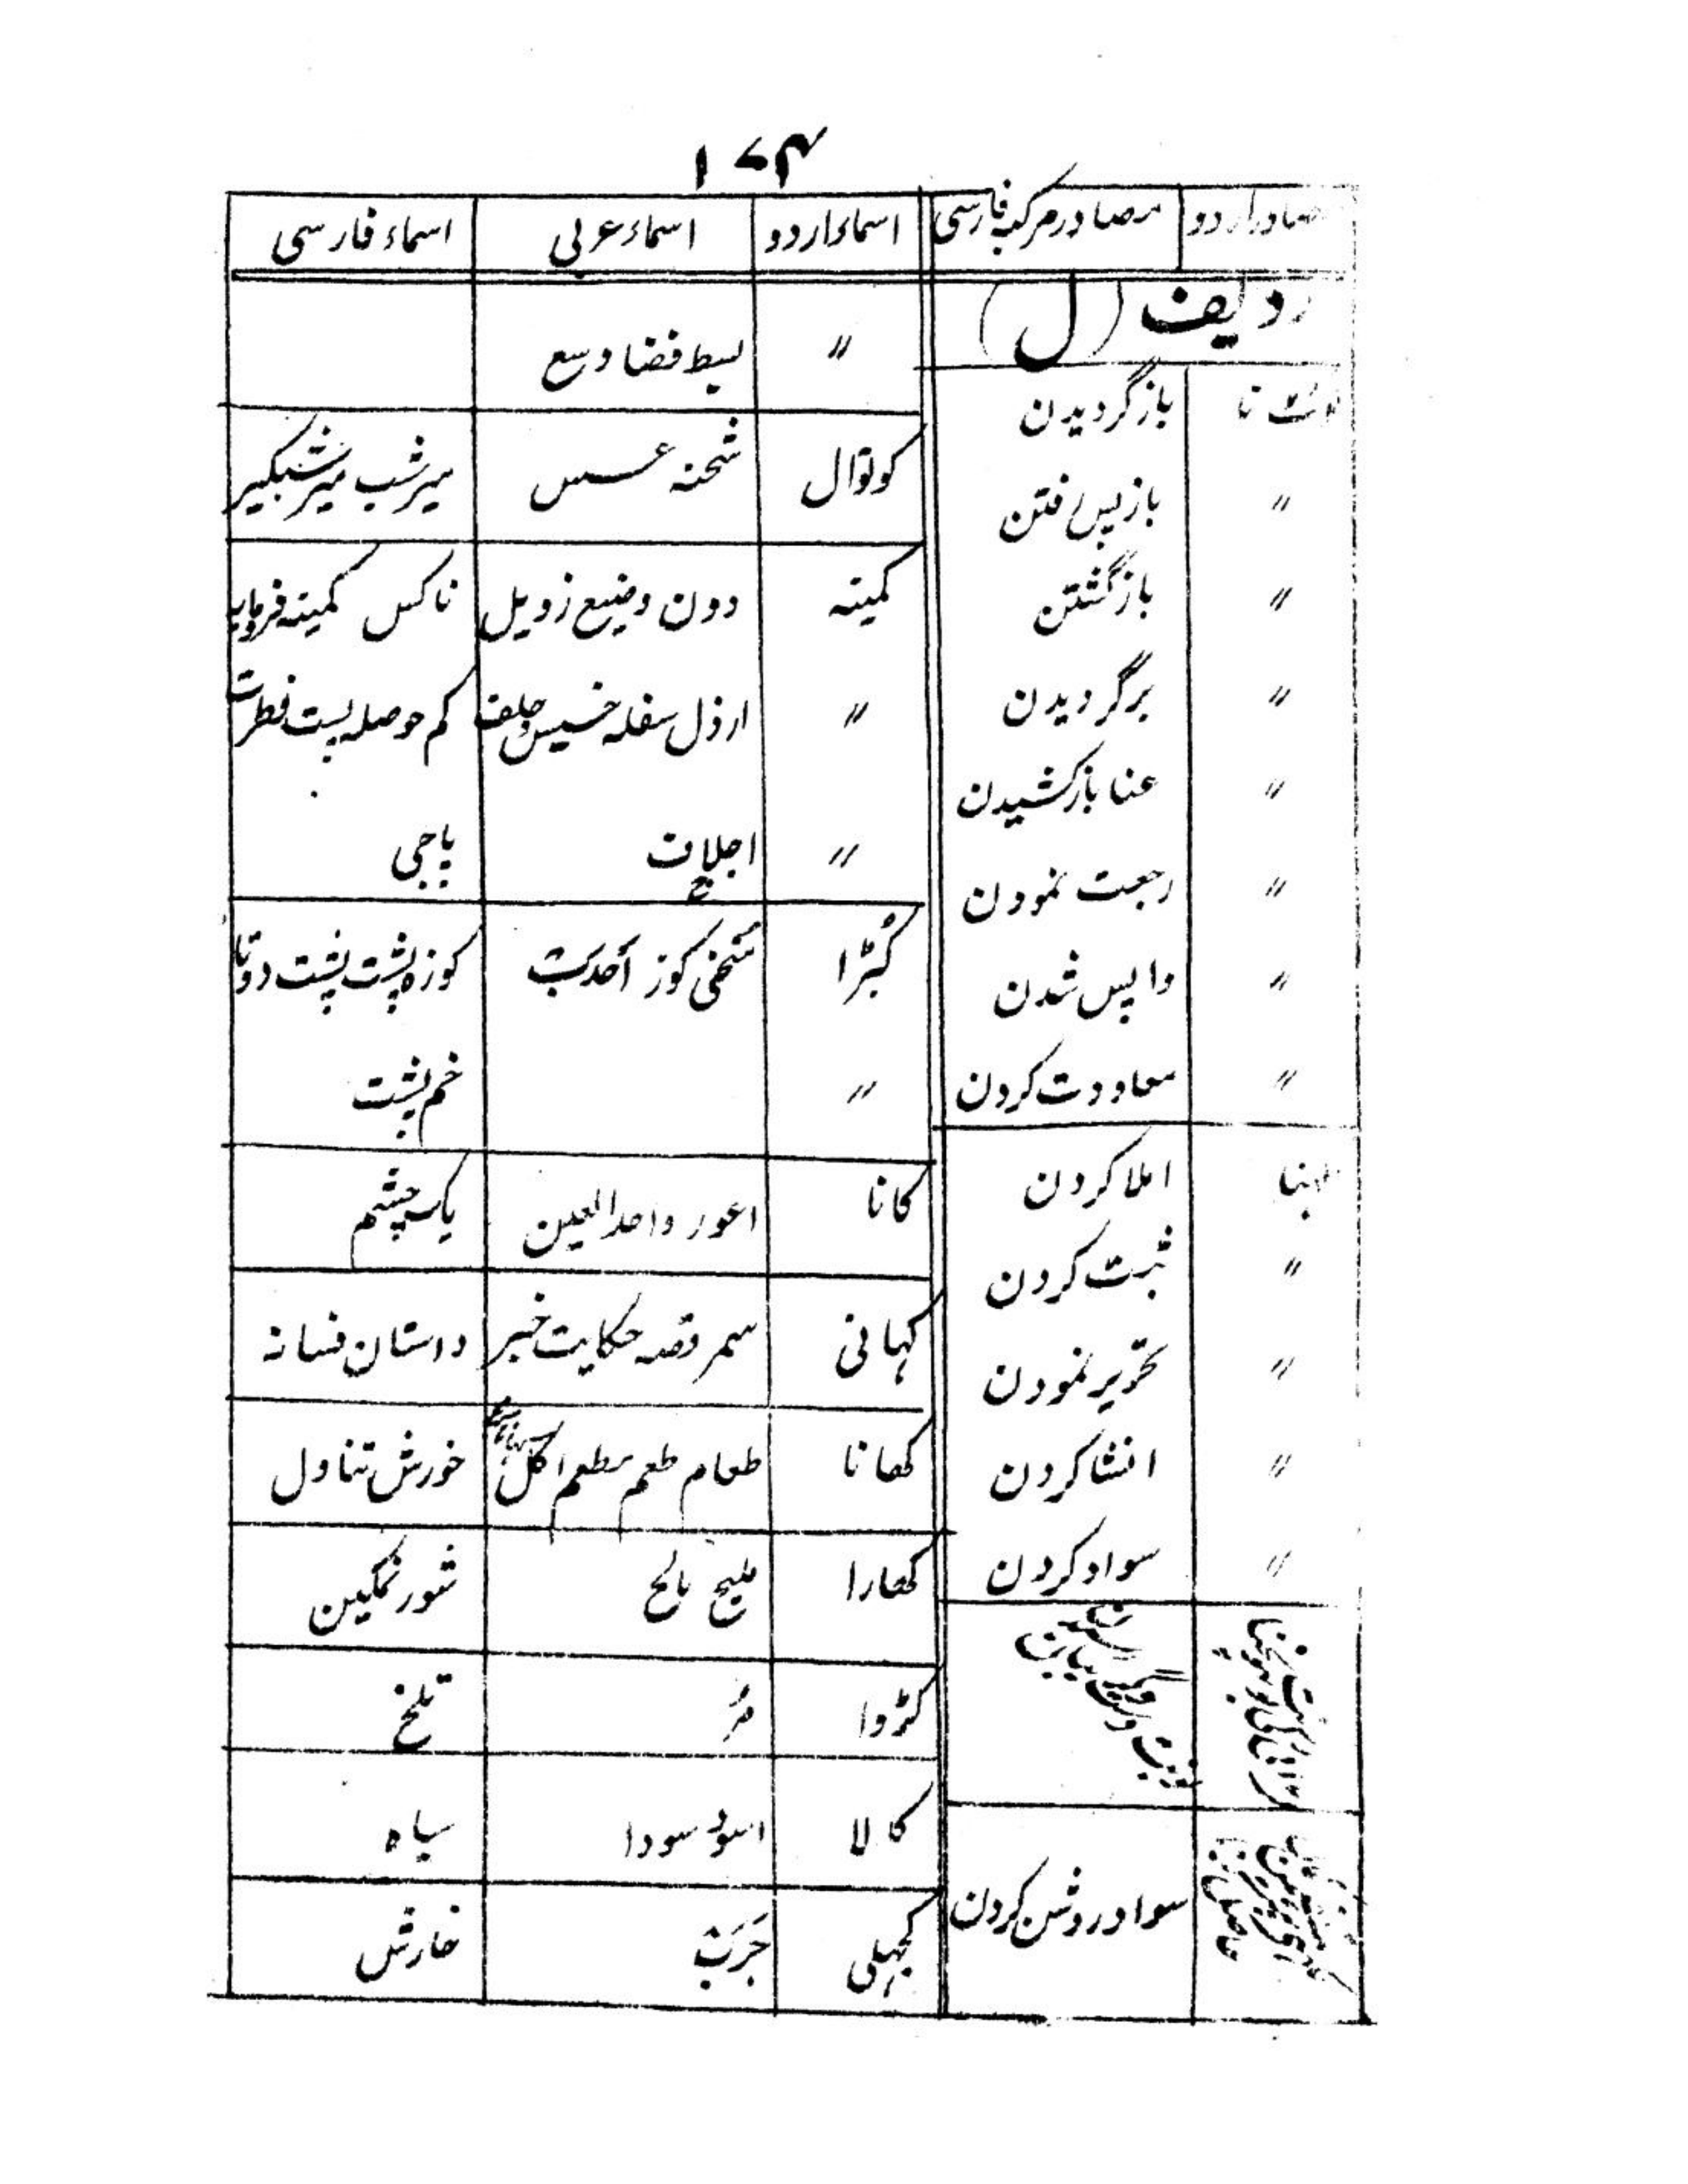 ۱۷۴
مصادر اردو | مصادر مرکب فارسی | اسماء اردو | اسماء عربی | اسماء فارسی
ردیف (ل)
بازگردیدن
〃 بازپس رفتن
〃 بازگشتن
〃 برگردیدن
〃 عنا بازکشیدن
〃 رجعت نمودن
〃 واپس شدن
〃 معاودت کردن
املا کردن
〃 ثبت کردن
〃 تحریر نمودن
〃 انشا کردن
〃 سواد کردن
سواد روشن کردن
〃 | بسیط فضا وسیع
کوتوال | شحنہ عسس | میر شب میر شبگیر
کمینہ | دون وضیع زویل | ناکس کمینہ فرومایہ
〃 | ارذل سفلہ خسیس جلف | کم حوصلہ پست فطرت
〃 | اجلاف | پاجی
کُبڑا | منحنی کوز أحدب | کوزہ پشت پشت دوتا
〃 | خم پشت
کانا | اعور واحد العین | یک چشم
کہانی | سمر قصہ حکایت خبر | داستان فسانہ
کھانا | طعام طعم مطعم اکل | خورش تناول
کھارا | ملیح مالح | شور نمکین
کڑوا | مُر | تلخ
کالا | اسود سودا | سیاہ
کجہلی | جَرَب | خارش